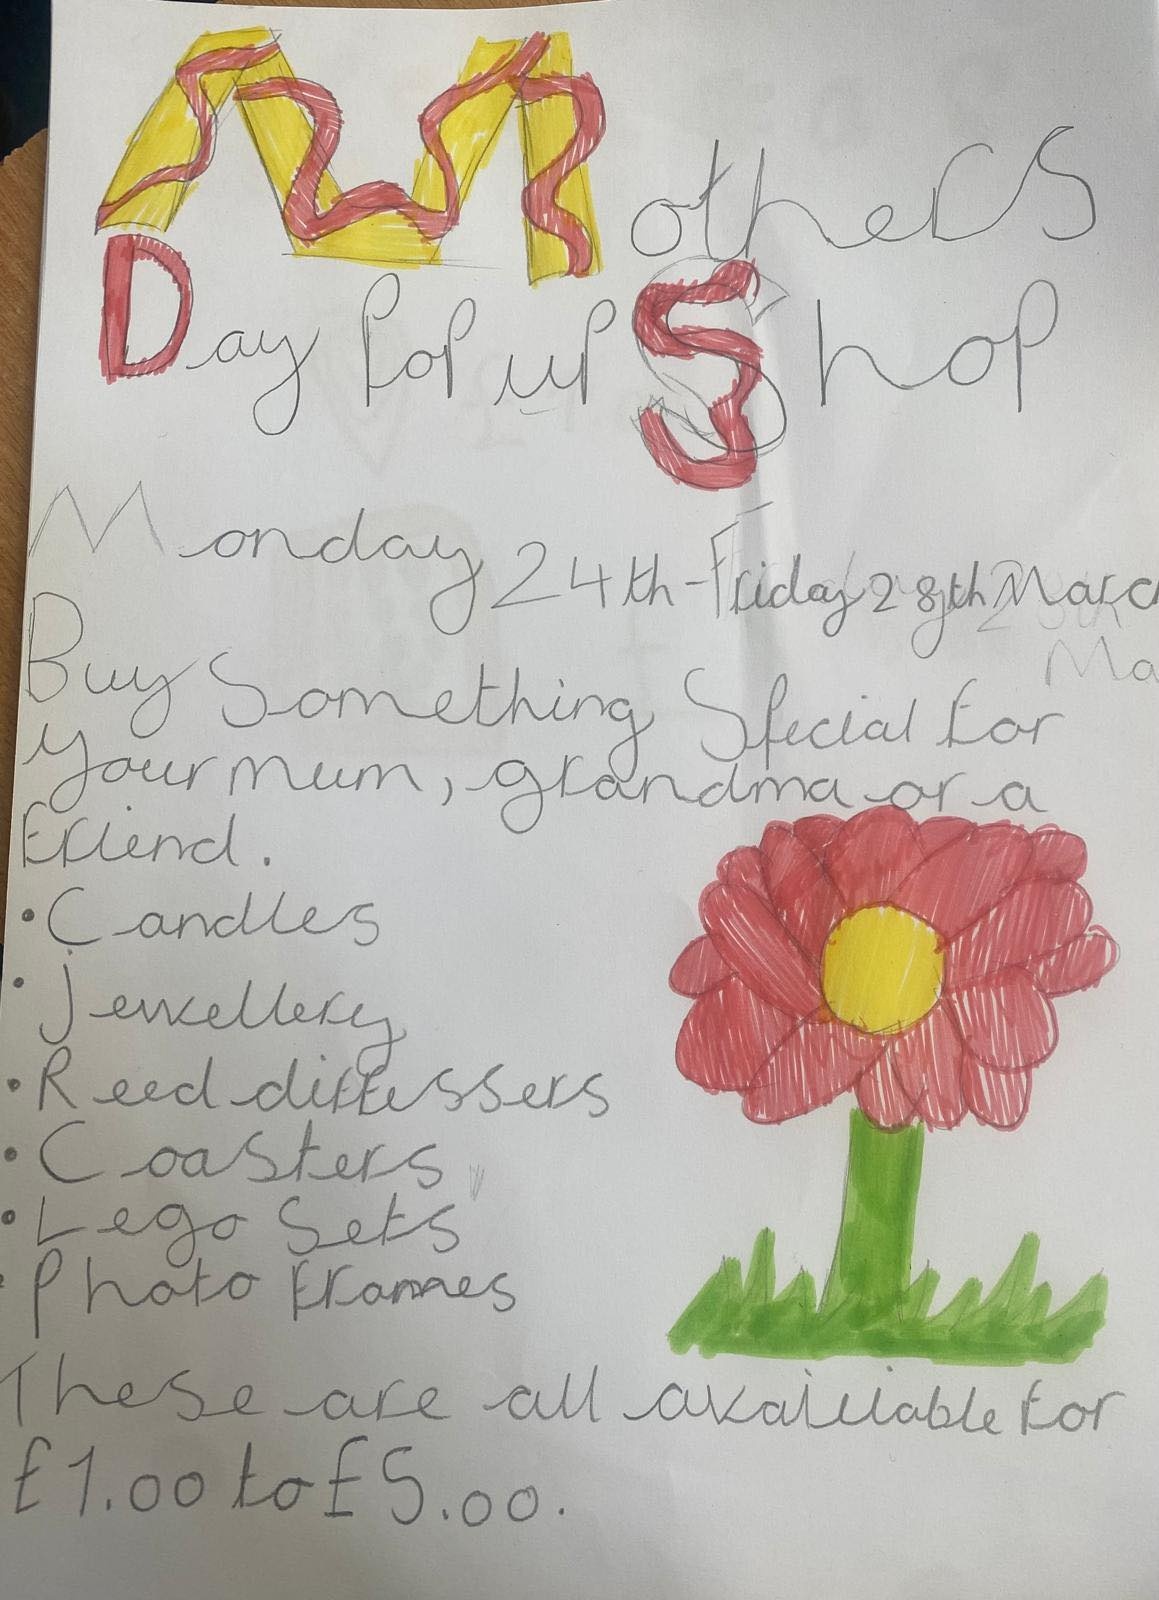 Mothers
Day Pop up Shop
Monday 24th-Friday 28th March
Buy Something Special for
your mum, grandma or a
friend.
• Candles
• Jewellery
• Reed diffessers
• Coasters
• Lego Sets
• Photo frames
These are all availiable for
£1.00 to £5.00.